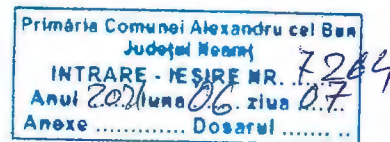 Primăria Comunei Alexandru cel Bun
Județul Neamț
INTRARE - IEȘIRE NR. 7264
Anul 2021 luna 06 ziua 07
Anexe ............. Dosarul ....... ..